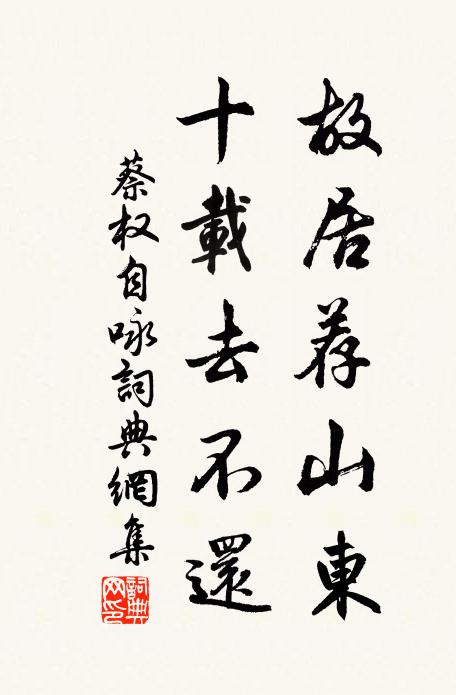 故居荐山東
十載去不還
蔡权自咏詞典網集
詞典网印